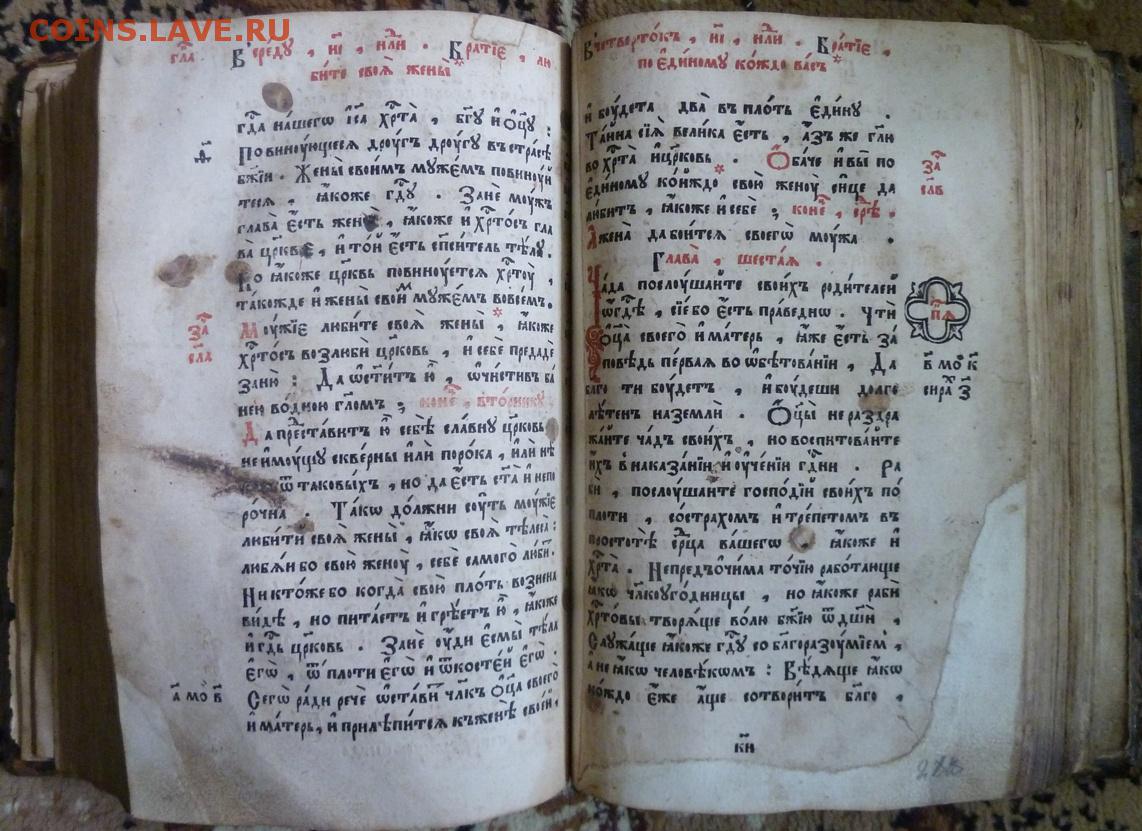 COINS.LAVE.РУ
гла҃
В̾ среду , н҃і , н҃лѝ . Братїе , лю
бите своѧ̀ жены̀ *
гдⷭ҇а на́шегѡ і҆с҃а хрⷭ҇та̀ , бг҃у и҆ ѻ҆ц҃у :
Повиноу́ющесѧ дрꙋ́гъ дрꙋ́гу въ стра́сѣ
бж҃їи . Жены̀ свои̑мъ мꙋже́мъ повиноу́й
тесѧ , ꙗ҆́коже гдⷭ҇у . Занѐ моу́жъ
глава̀ є҆́сть жена́мъ , ꙗ҆́коже и҆ хрⷭ҇то́съ гла
ва̀ цр҃кве , и҆ то́й є҆́сть сп҃си́тель тѣ́лу .
Но ꙗ҆́коже цр҃квь повиноу́етсѧ хрⷭ҇тоу̀ ,
та́кожде и҆ жены̀ свои́м мꙋже́мъ вовсе́мъ .
за҃
сл҃а
Моу́жїе люби́те своѧ̀ жены̀ , * ꙗ҆́коже
хрⷭ҇то́съ возлюбѝ цр҃ковь , и҆ себѐ предадѐ
за ню̀ : Да ѡ҆ст҃и́тъ ю҆̀ , ѡ҆чи́стивъ ба́
нею во́дною гл҃омъ ; коне́ц , вто́рнику
Да предста́витъ ю҆̀ себѣ̀ сла́вну цр҃ковь
не и҆моу́щу скве́рны и҆лѝ поро́ка , и҆лѝ нѣ́
что ѿ таковы́хъ , но да є҆́сть ст҃а̀ и҆ непо
ро́чна . Та́кѡ до́лжни соу́ть моу́жїе
люби́ти своѧ̀ жены̀ , ꙗ҆́кѡ своѧ̀ тѣлеса̀ :
люблѧ́й бо свою̀ женоу̀ , себѐ самого̀ лю́битъ .
Никто́же бо когда̀ свою̀ пло́ть вознена
ви́дѣ , но пита́етъ и҆ грѣ́етъ ю҆̀ , ꙗ҆́коже
и҆ гдⷭ҇ь цр҃ковь . Занѐ оу҆́ди є҆смы̀ тѣ́ла
є҆гѡ̀ , ѿ пло́ти є҆гѡ̀ и҆ ѿ косте́й є҆гѡ̀ .
Сегѡ̀ ра́ди речѐ ѡ҆ста́витъ чл҃къ ѻ҆ц҃а̀ своего̀
и҆ ма́терь , и҆ прилѣпи́тсѧ къ женѣ̀ свое́й ,
а҃ мо҃ в҃
В̾ четверто́къ , н҃і , н҃лѝ . Бра́тїе ,
по є҆ди́ному ко́ждо ва́съ *
и҆ боу́дета два̀ въ пло́ть є҆ди́ну .
Та́йна сїѧ̀ вели́ка є҆́сть , а҆́зъ же гл҃ю
во хрⷭ҇та̀ и҆ цр҃ковь . Ѻ҆ба́че и҆ вы̀ по
є҆ди́ному ко́йждо свою̀ женоу̀ си́це да
лю́битъ , ꙗ҆́коже и҆ себѐ ; коне́ц , сре́дѣ .
А жена̀ да бои́тсѧ своегѡ̀ моу́жа .
за҃
сл҃в
Глава̀ , шеста́ѧ .
Ча́да послоу́шайте свои́хъ роди́телей
ѡ҆ гдⷭ҇ѣ , сїе́ бо є҆́сть пра́веднѡ . Чтѝ
ѻ҆ц҃а̀ своего̀ и҆ ма́терь , ꙗ҆́же є҆́сть за́
повѣдь пе́рваѧ во ѡ҆бѣтова́нїи , Да
бла́го ти боу́детъ , и҆ боу́деши долго
лѣ́тенъ на землѝ . Ѻ҆ц҃ы̀ не раздра
жа́йте ча́дъ свои́хъ , но воспитова́йте
и҆́хъ в наказа́нїи и҆ оу҆че́нїи гдⷭ҇ни . Ра
бѝ , послоу́шайте господі́й свои́хъ по́
плоти , со стра́хомъ и҆ тре́петомъ въ
простотѣ̀ се́рдца ва́шегѡ , ꙗ҆́коже и҆
хрⷭ҇та̀ . Не предъ ѻ҆чи́ма то́чїю рабо́тающе
ꙗ҆́кѡ чл҃коуго́дницы , но ꙗ҆́коже рабѝ
хрⷭ҇то́вы творѧ́ще во́лю бж҃їю ѿ дш҃ѝ ,
Слꙋжа́ще ꙗ҆́коже гдⷭ҇у со бл҃горазоу́мїемъ ,
а҆ не ꙗ҆́кѡ человѣ́кѡмъ : Вѣ́дѧще ꙗ҆́кѡ
ко́ждо є҆́же а҆́ще сотвори́тъ бл҃го ,
п҃а
в҃ мо҃ к҃
сира́х з҃